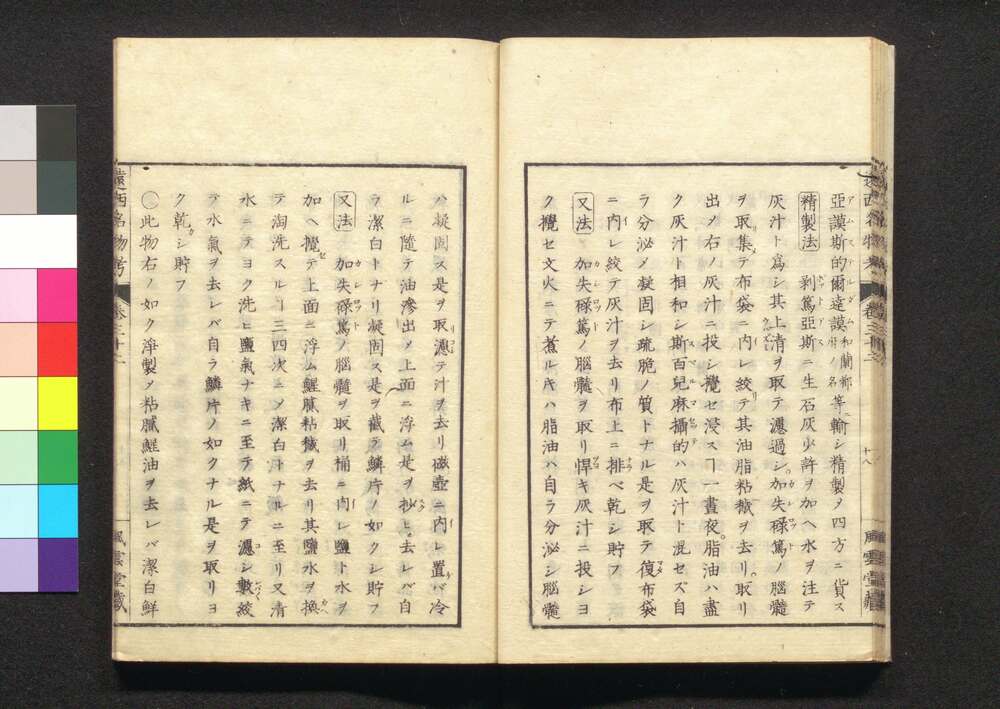 遠西名物考 巻三十二 十八 風雲堂藏
亞謨斯的爾達謨和蘭都府ノ名等ニ輸シ精製メ四方ニ貨ス
精製法 剥篤亞斯ニ生石灰少許ヲ加ヘ水ヲ注テ
灰汁ト爲シ其上清ヲ取テ濾過シ加失碌篤ノ腦髓
ヲ取集テ布袋ニ内レ絞テ其油脂粘穢ヲ去リ取リ
出メ右ノ灰汁ニ投シ攪セ浸スヿ一晝夜脂油ハ盡
ク灰汁ト相和シ斯百兒麻攝的ハ灰汁ト混セズ自
ラ分泌メ凝固シ疏脆ノ質トナル是ヲ取テ復布袋
ニ内レ絞テ灰汁ヲ去リ布上ニ排ベ乾シ貯フ
又法 加失碌篤ノ腦髓ヲ取リ悍キ灰汁ニ投シヨ
ク攪セ文火ニテ煮ルキハ脂油ハ自ラ分泌シ腦髓
ハ凝固ス是ヲ取濾テ汁ヲ去リ磁壺ニ内レ置バ冷
ルニ隨テ油滲出メ上面ニ浮ム是ヲ抄ヒ去レバ自
ラ潔白トナリ凝固ス是ヲ截テ鱗片ノ如クシ貯フ
又法 加失碌篤ノ腦髓ヲ取リ桶ニ内レ鹽ト水ヲ
加ヘ攪テ上面ニ浮ム腥膩粘穢ヲ去リ其鹽水ヲ換
テ淘洗スルヿ三四次ニメ潔白トナルニ至リ又清
水ニテヨク洗ヒ鹽氣ナキニ至テ紙ニテ濾シ數絞
テ水氣ヲ去レバ自ラ鱗片ノ如クナル是ヲ取リヨ
ク乾シ貯フ
○此物右ノ如ク淨製メ粘膩鯹油ヲ去レバ潔白鮮
遠西名物考 巻三十二 風雲堂藏